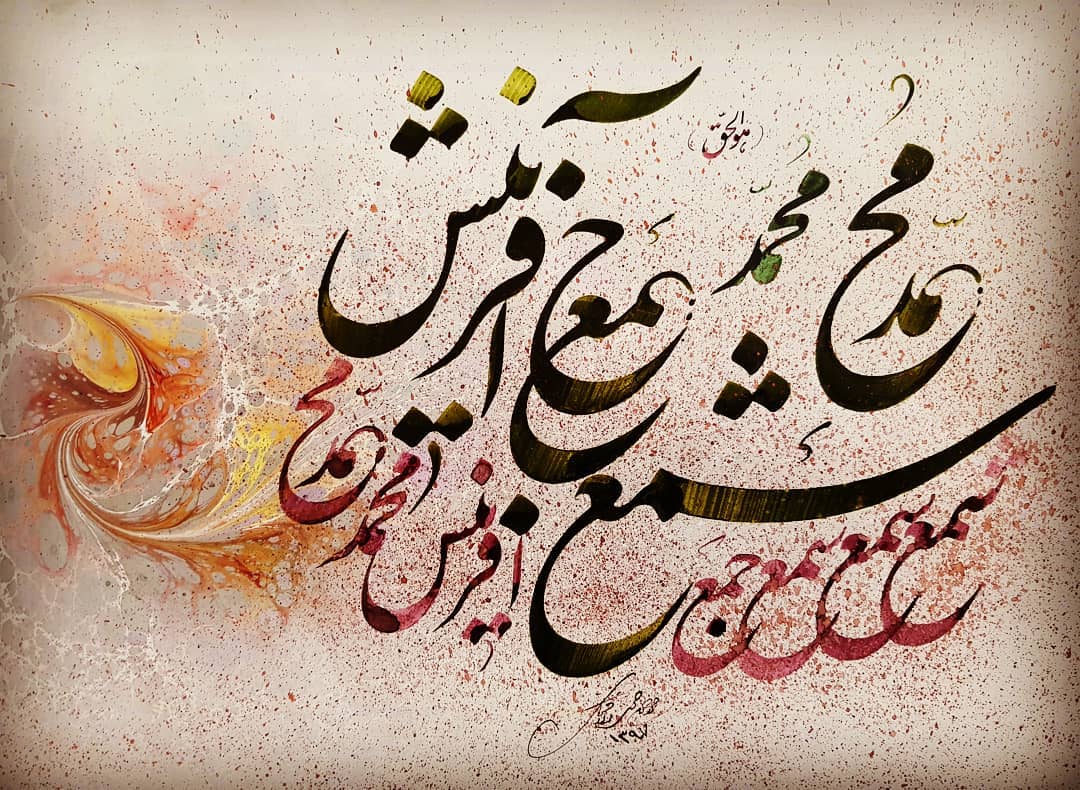 هو الحقّ
محمّد محمّد
شمع جمع آفرینش
شمع شمع شمع جمع آفرینش محمّد محمّد
۱۳۹۷